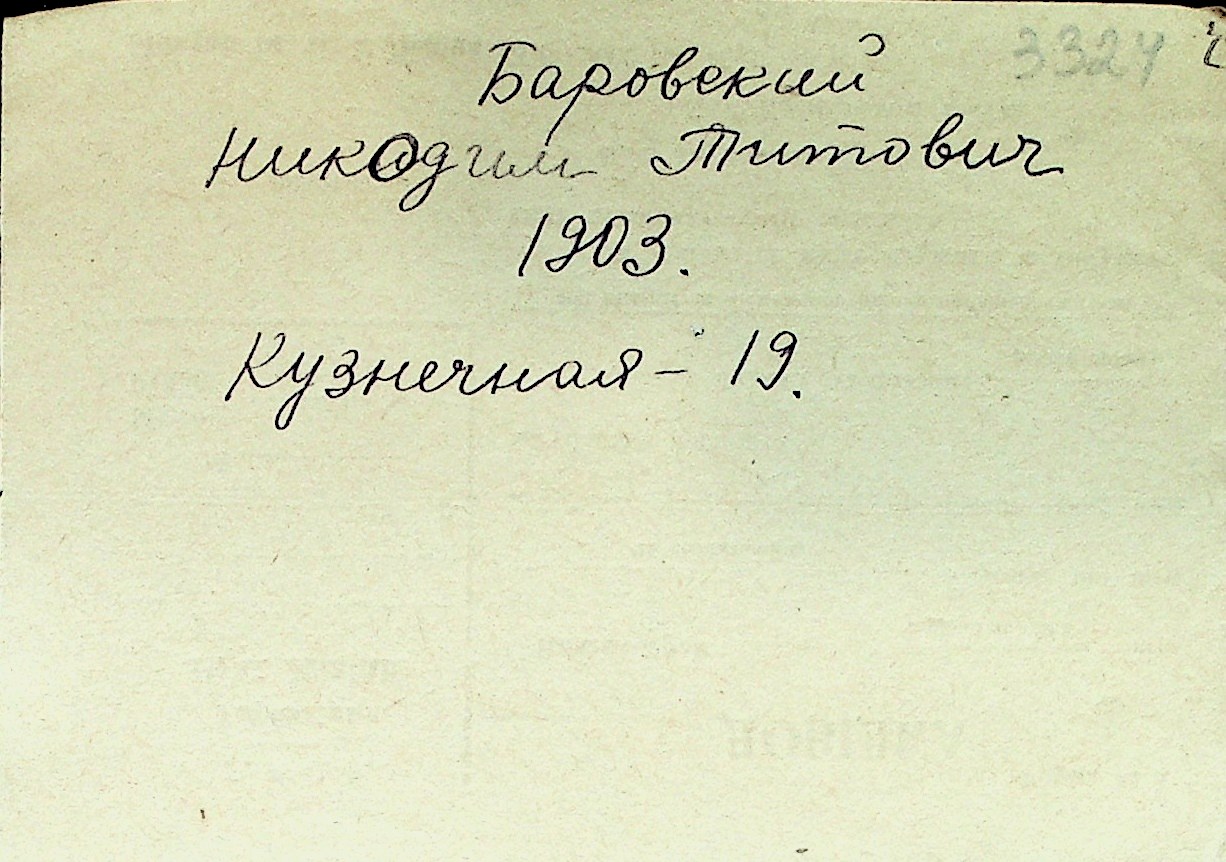 3324
Баровский
Никодим Титович
1903.
Кузнечная – 19.